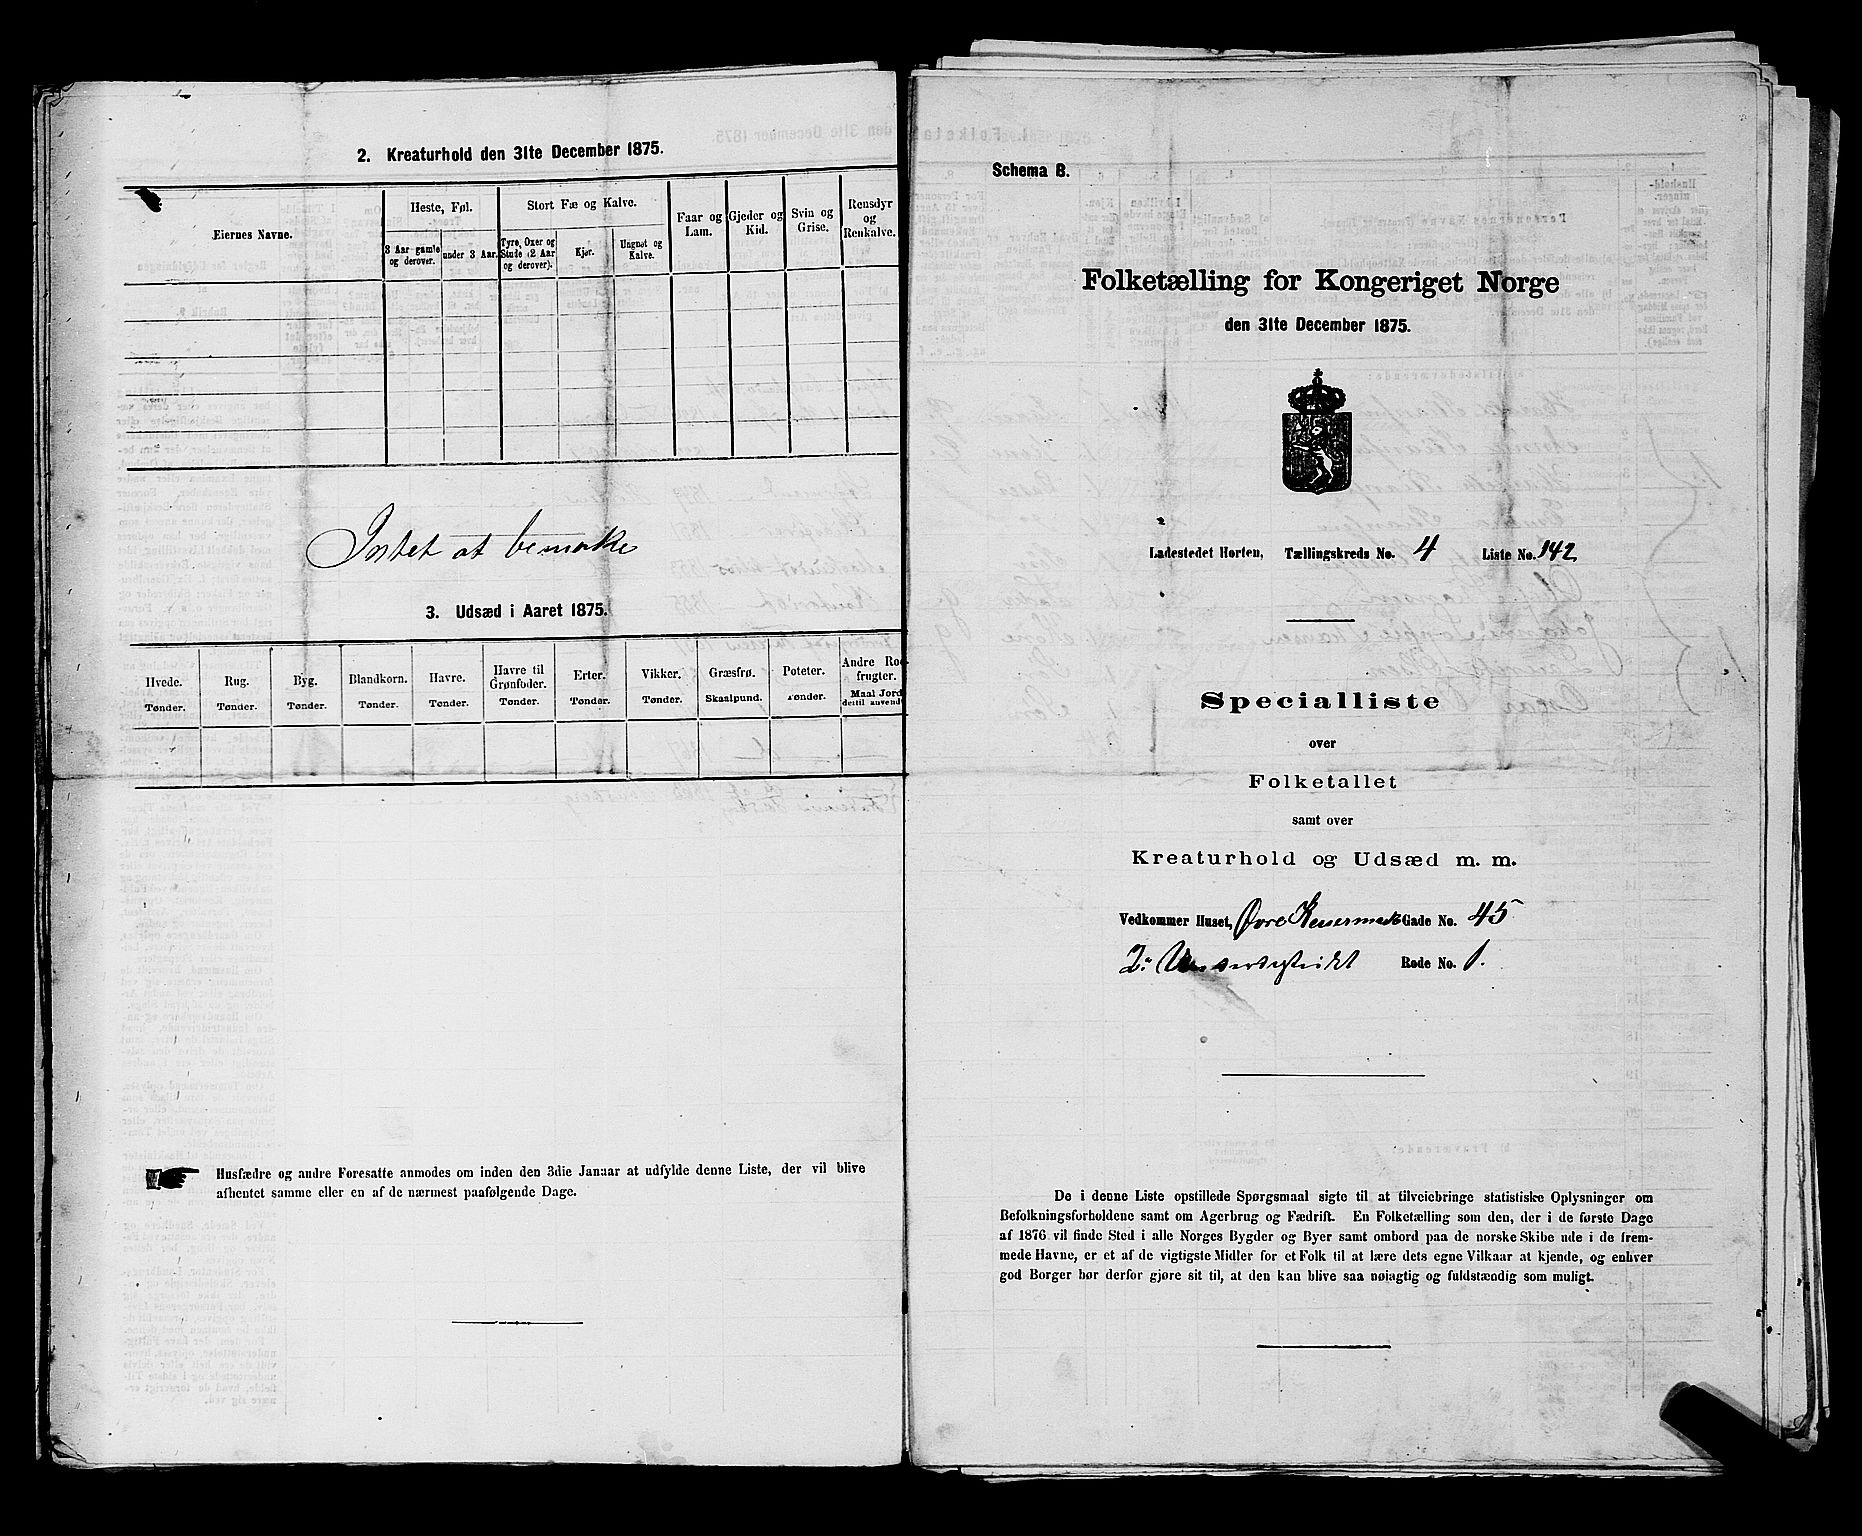 2. Kreaturhold den 31te December 1875.
Eiernes Navne.
Heste, Føl.
3 Aar gamle og derover.
under 3 Aar.
Stort Fæ og Kalve.
Tyre, Oxer og Stude (2 Aar og derover).
Kjør.
Ungnøt og Kalve.
Faar og Lam.
Gjeder og Kid.
Svin og Grise.
Rensdyr og Renkalve.
Intet at bemærke
3. Udsæd i Aaret 1875.
Hvede. Tønder.
Rug. Tønder.
Byg. Tønder.
Blandkorn. Tønder.
Havre. Tønder.
Havre til Grønfoder. Tønder.
Erter. Tønder.
Vikker. Tønder.
Græsfrø. Skaalpund.
Poteter. Tønder.
Andre Rodfrugter. Maal Jord dertil anvendt
Husfædre og andre Foresatte anmodes om inden den 3die Januar at udfylde denne Liste, der vil blive
afhentet samme eller en af de nærmest paafølgende Dage.
Schema B.
Folketælling for Kongeriget Norge
den 31te December 1875.
Ladestedet Horten, Tællingskreds No. 4 Liste No. 142
Specialliste
over
Folketallet
samt over
Kreaturhold og Udsæd m. m.
Vedkommer Huset, Øvre Keisermark Gade No. 45
2. Rode No. 1.
De i denne Liste opstillede Spørgsmaal sigte til at tilveiebringe statistiske Oplysninger om
Befolkningsforholdene samt om Agerbrug og Fædrift. En Folketælling som den, der i de første Dage
af 1876 vil finde Sted i alle Norges Bygder og Byer samt ombord paa de norske Skibe ude i de frem-
mede Havne, er et af de vigtigste Midler for et Folk til at lære dets egne Vilkaar at kjende, og enhver
god Borger bør derfor gjøre sit til, at den kan blive saa nøiagtig og fuldstændig som muligt.